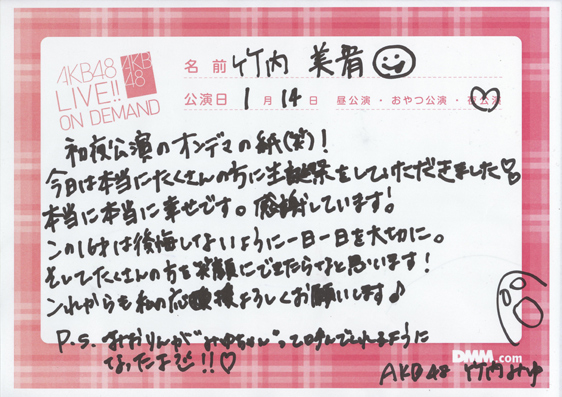 AKB48
LIVE!!
ON DEMAND
AKB
48
名前 竹内 美宥
公演日 1月14日 昼公演・おやつ公演・夜公演
初夜公演のオンデマの紙(笑)!
今日は本当にたくさんの方に生誕祭をしていただきました♡
本当に本当に幸せです。感謝しています!
この16才は後悔しないように一日一日を大切に。
そしてたくさんの方を笑顔にできたらなと思います!
これからも私の応援よろしくお願いします♪
P.S. みおりんが"みゆちゃん"って呼んでくれるように
なったよ!!♡
DMM.com
AKB48 竹内みゆ